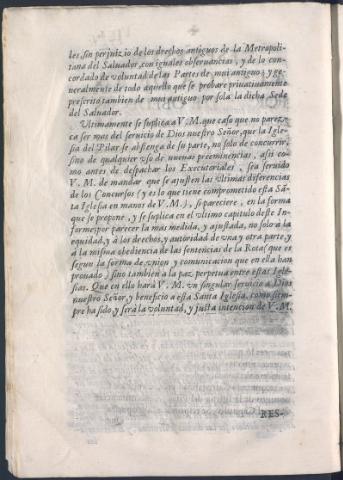 les, sin perjuizio de los drechos antiguos de la Metropoli-
tana del Salvador, con iguales observancias, y de lo con-
cordado de voluntad de las Partes de mui antiguo; y ge-
neralmente de todo aquello que se probare privativamente
prescrito tambien de mui antiguo por sola la dicha Sede
del Salvador.
Ultimamente se suplica a V. M. que caso que no parez-
ca ser mas del servicio de Dios nuestro Señor, que la Igle-
sia del Pilar se abstenga de su parte, no solo de concurrir,
sino de qualquier uso de nuevas preeminencias, assi co-
mo antes de despachar los Executoriales, sea servido
V. M. de mandar que se ajusten las ultimas diferencias
de los Concursos (y es lo que tiene comprometido esta Sã-
ta Iglesia en manos de V. M.), si pareciere, en la forma
que se propone, y se suplica en el ultimo capitulo deste In-
forme; por parecer la mas medida, y ajustada, no solo à la
equidad, y à los drechos, y autoridad de una y otra parte, y
à la misma obediencia de las sentencias de la Rota (que es
segun la forma de union y comunicacion que en ella han
provado) sino tambien à la paz perpetua entre estas Igle-
sias. Que en ello harà V. M. un singular servicio a Dios
nuestro Señor, y beneficio a esta Santa Iglesia, como siem-
pre ha sido, y serà la voluntad, y justa intencion de V. M.
RES-